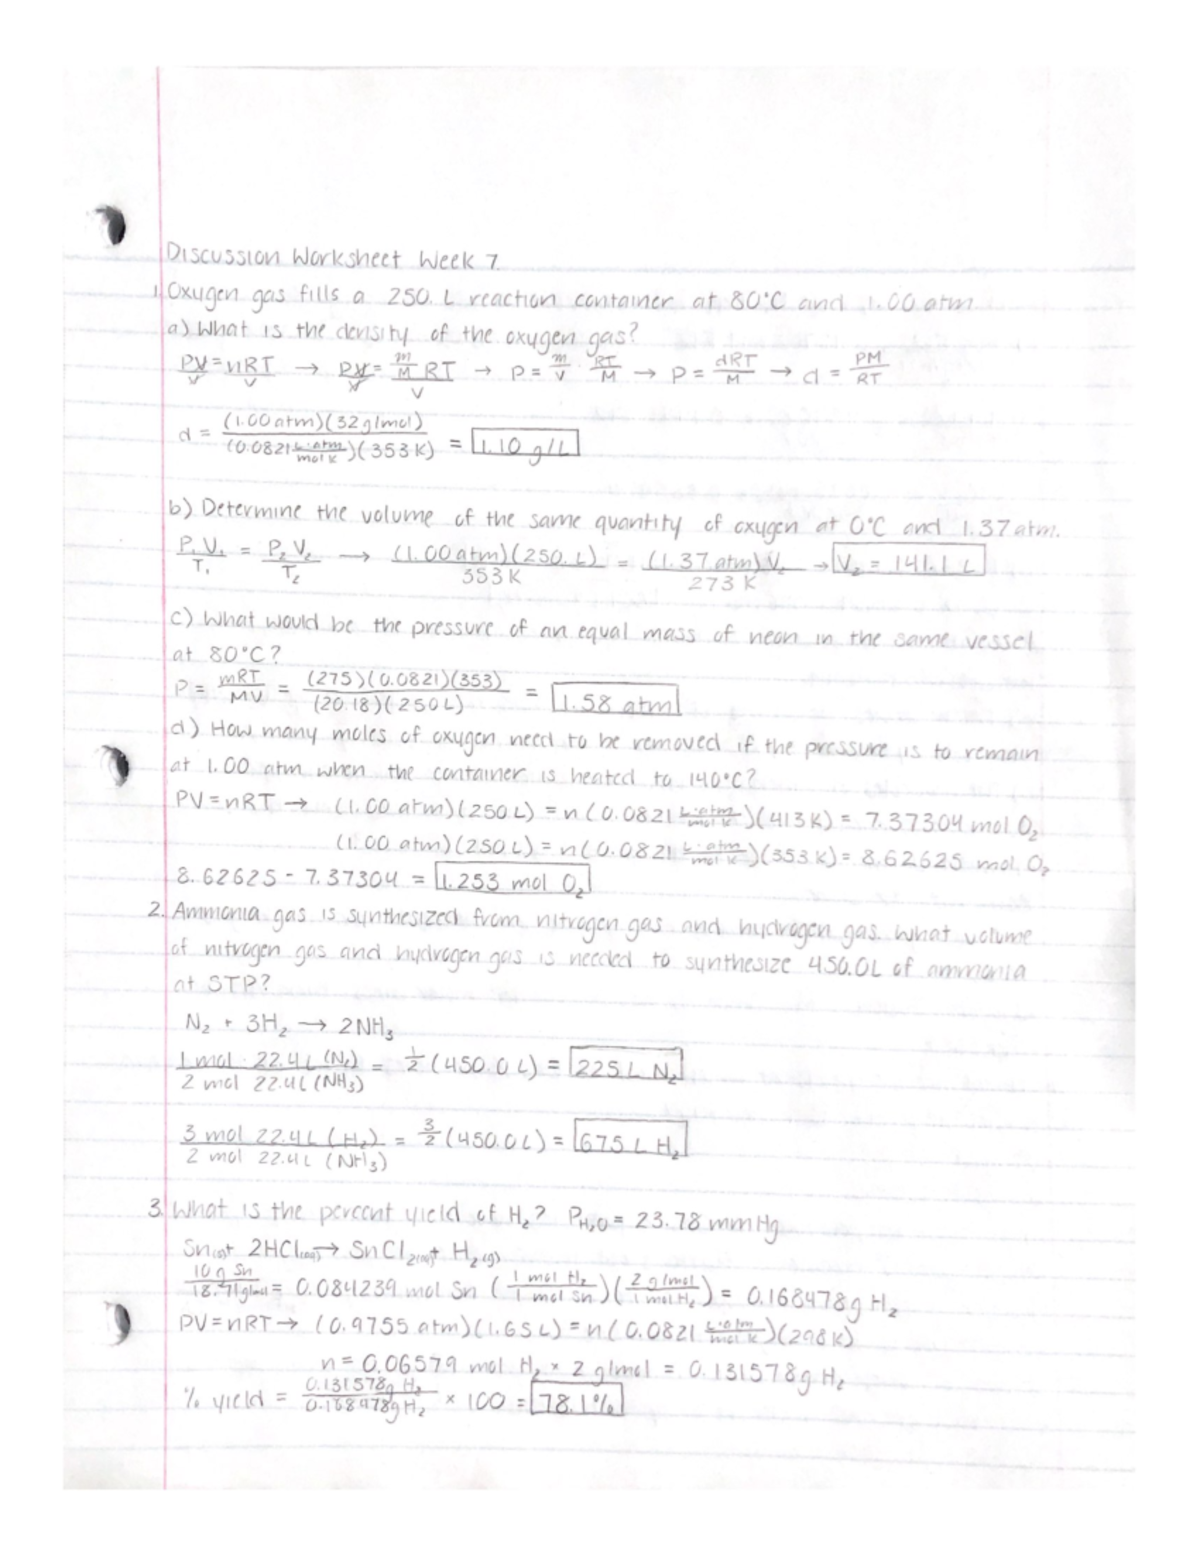 Discussion Worksheet Week 7
1. Oxygen gas fills a 250. L reaction container at 80°C and 1.00 atm
a) What is the density of the oxygen gas?
PV/V = nRT/V → PV/V = m/M RT/V → P = m/V · RT/M → P = dRT/M → d = PM/RT
d = (1.00 atm)(32 g/mol) / (0.0821 L·atm/mol K)(353 K) = 1.10 g/L
b) Determine the volume of the same quantity of oxygen at 0°C and 1.37 atm.
P₁V₁/T₁ = P₂V₂/T₂ → (1.00 atm)(250. L)/353 K = (1.37 atm) V₂/273 K → V₂ = 141.1 L
c) What would be the pressure of an equal mass of neon in the same vessel
at 80°C?
P = mRT/MV = (275)(0.0821)(353)/(20.18)(250L) = 1.58 atm
d) How many moles of oxygen need to be removed if the pressure is to remain
at 1.00 atm when the container is heated to 140°C?
PV = nRT → (1.00 atm)(250 L) = n(0.0821 L·atm/mol K)(413 K) = 7.37304 mol O₂
(1.00 atm)(250 L) = n(0.0821 L·atm/mol K)(353 K) = 8.62625 mol O₂
8.62625 - 7.37304 = 1.253 mol O₂
2. Ammonia gas is synthesized from nitrogen gas and hydrogen gas. What volume
of nitrogen gas and hydrogen gas is needed to synthesize 450.0L of ammonia
at STP?
N₂ + 3H₂ → 2NH₃
1 mol · 22.4L (N₂) / 2 mol 22.4L (NH₃) = 1/2 (450.0 L) = 225 L N₂
3 mol 22.4L (H₂) / 2 mol 22.4L (NH₃) = 3/2 (450.0 L) = 675 L H₂
3. What is the percent yield of H₂? P H₂O = 23.78 mmHg
Sn(s) + 2HCl(aq) → SnCl₂(aq) + H₂(g)
10 g Sn / 18.71 g/mol = 0.084239 mol Sn (1 mol H₂/1 mol Sn)(2 g/mol/1 mol H₂) = 0.168478g H₂
PV = nRT → (0.9755 atm)(1.65 L) = n(0.0821 L·atm/mol K)(298 K)
n = 0.06579 mol H₂ × 2 g/mol = 0.131578g H₂
% yield = 0.131578g H₂ / 0.168478g H₂ × 100 = 78.1%